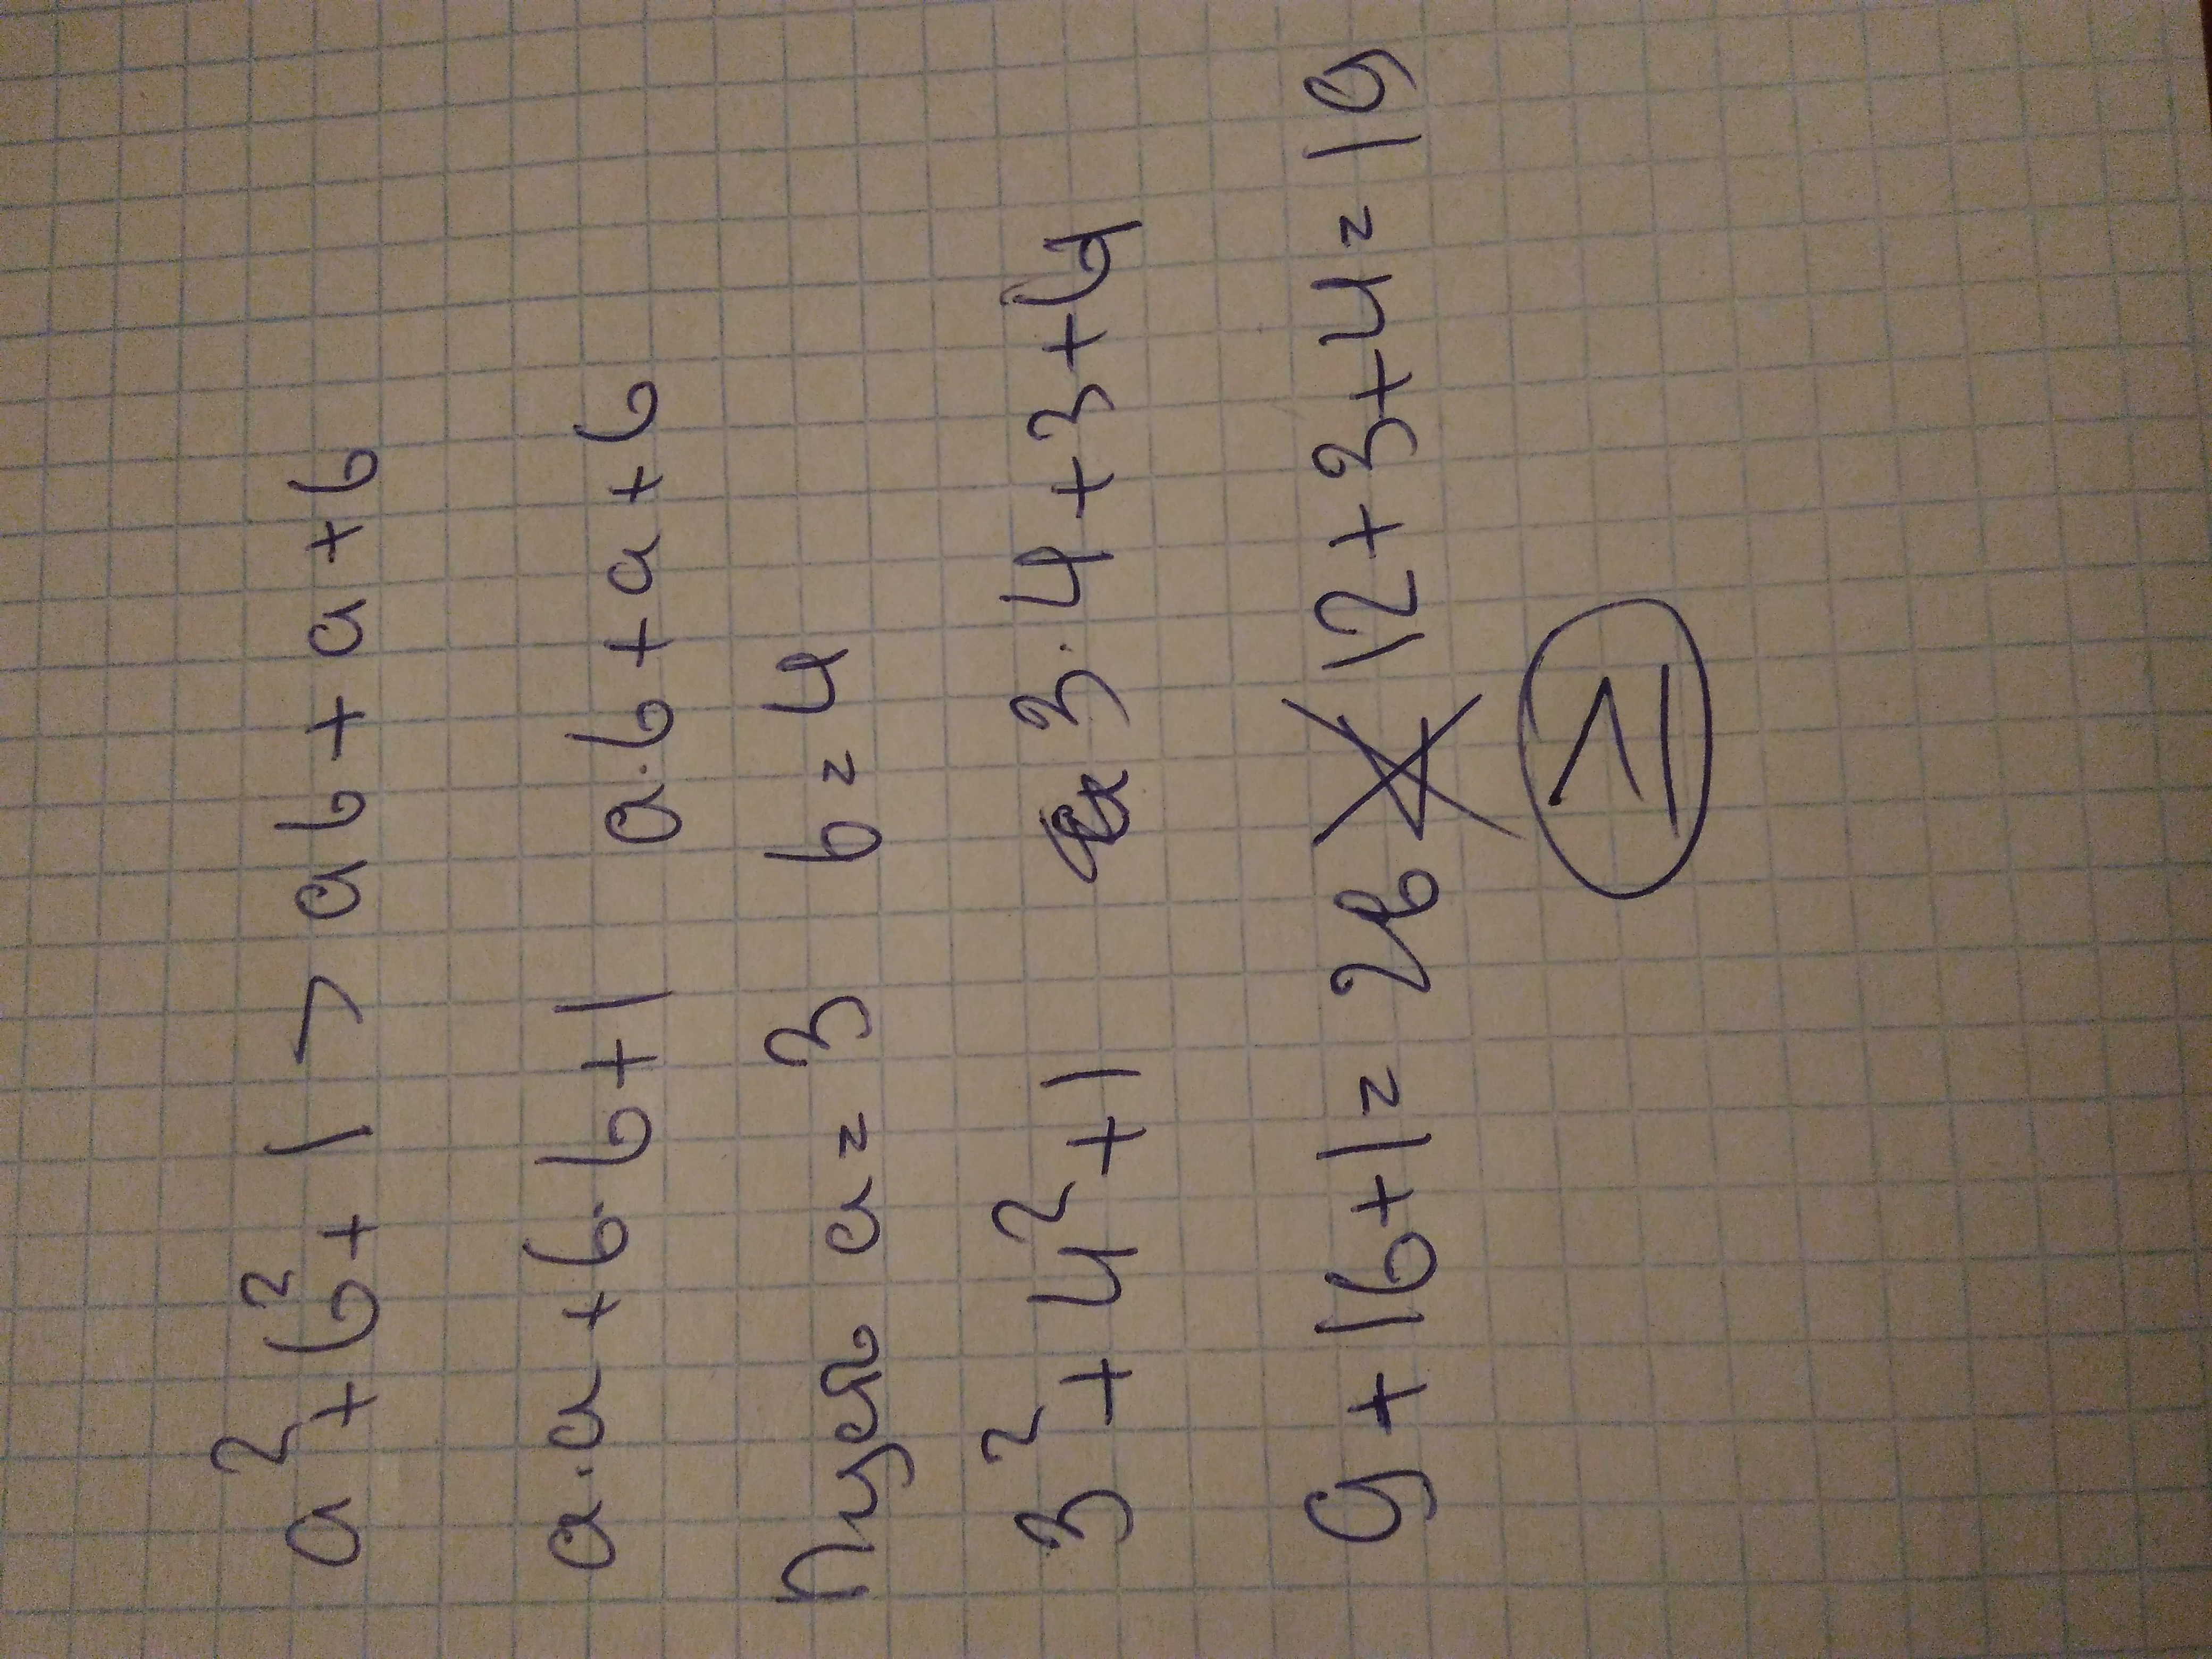 a² + b² + 1 > ab + a + b
a·a + b·b + 1 a·b + a + b
пусть a = 3 b = 4
3² + 4² + 1 3·4 + 3 + 4
9 + 16 + 1 = 26 12 + 3 + 4 = 19
≥